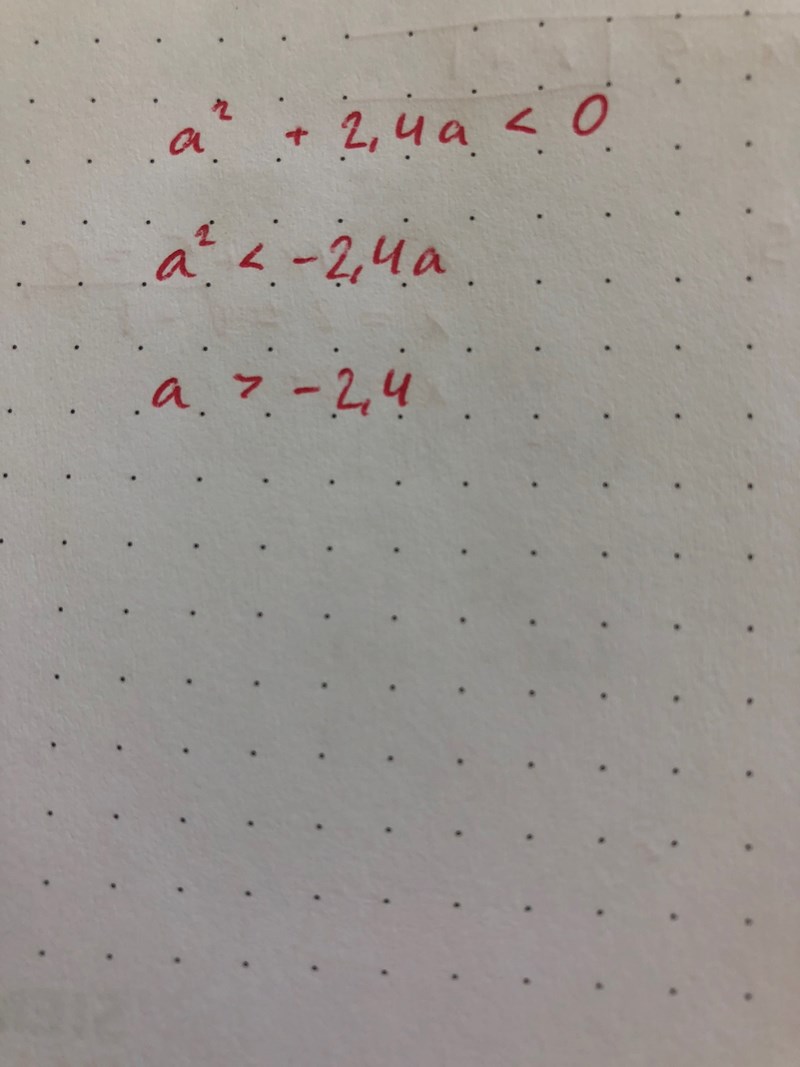 a² + 2,4a < 0
a² < -2,4a
a > -2,4